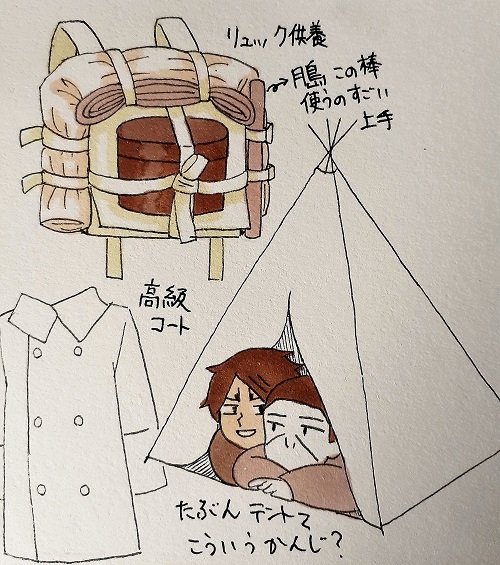 リュック供養
→月島 この棒
使うのすごい
上手
高級
コート
たぶん テントて
こういうかんじ?